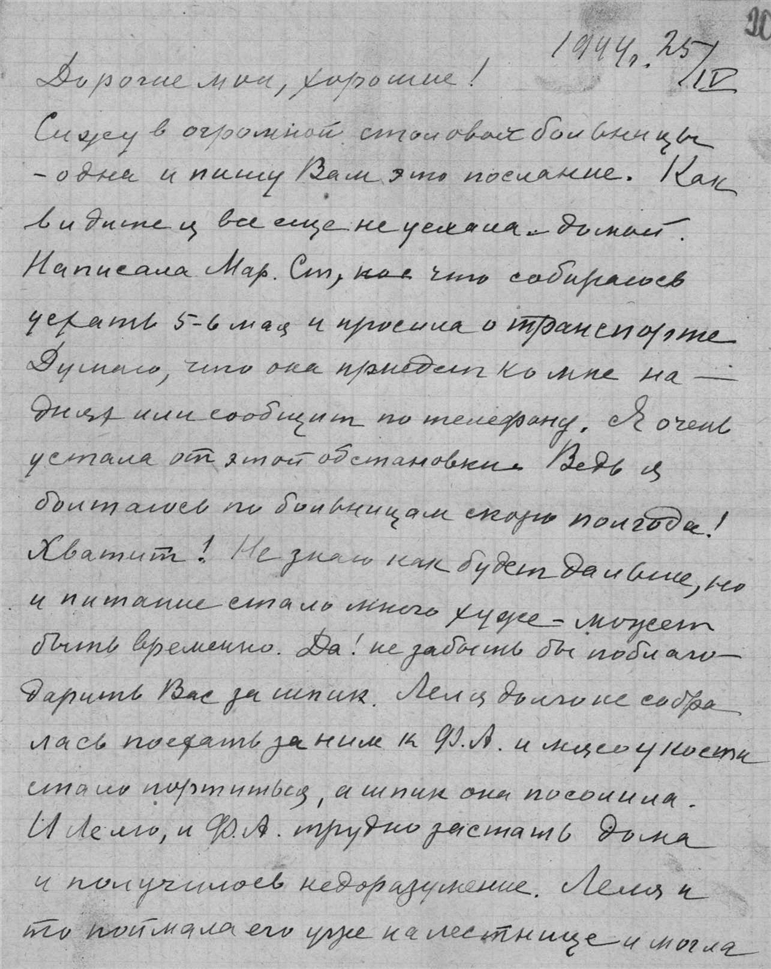 20
1944г. 25/IV
Дорогие мои, хорошие!
Сижу в огромной столовой больницы
- одна и пишу Вам это послание. Как
видите я все еще не уехала домой.
Написала Мар. Ст, что собираюсь
уехать 5-6 мая и просила о транспорте
Думаю, что она приедет ко мне на-
днях или сообщит по телефону. Я очень
устала от этой обстановки. Ведь я
болтаюсь по больницам скоро полгода!
Хватит! Не знаю как будет дальше, но
и питание стало много хуже - может
быть временно. Да! не забыть бы поблаго-
дарить Вас за шпик. Леля долго не собра
лась поехать за ним к Ф.А. и мясо у кости
стало портиться, а шпик она посолила.
И Лелю, и Ф.А. трудно застать дома
и получилось недоразумение. Леля и
то поймала его уже на лестнице и могла